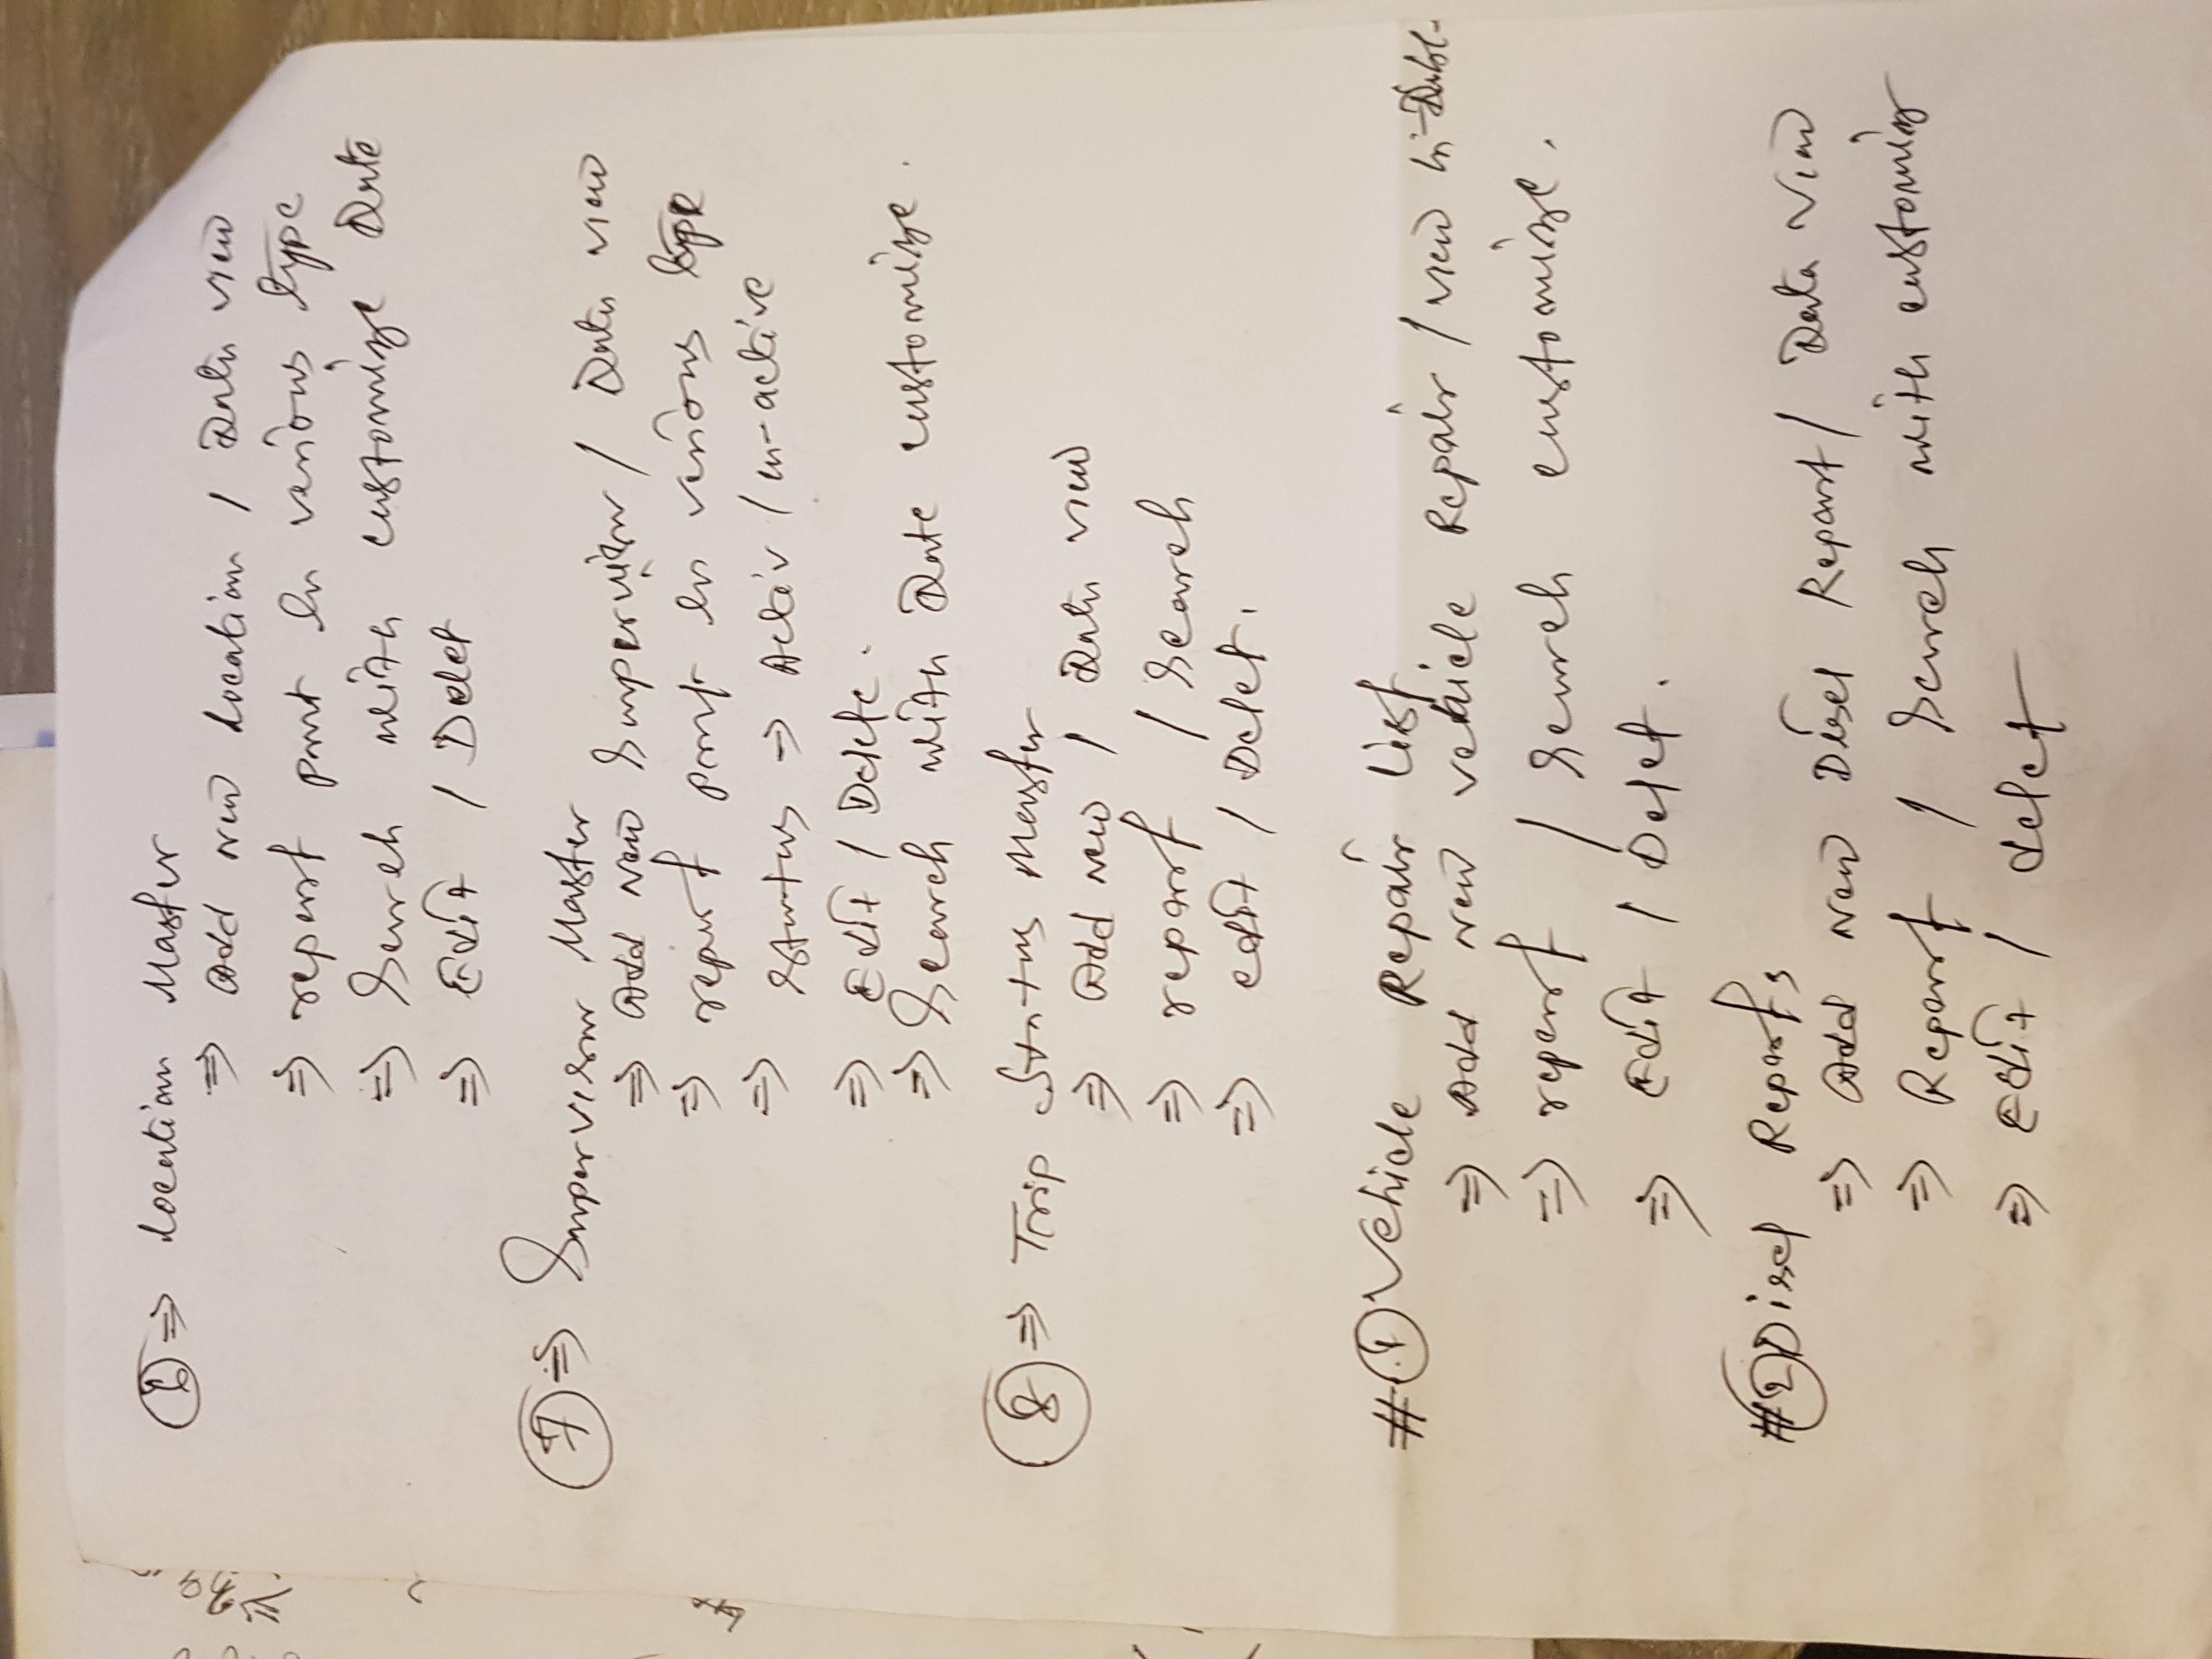 ⑥ ⇒ Location Master
⇒ Add New Location / Data view
⇒ report print in various type
⇒ Search with customize Date
⇒ Edit / Delet
⑦ ⇒ Supervisor Master
⇒ Add New Supervisor / Data view
⇒ report print in various type
⇒ Status → Activ / in-active
⇒ Edit / Delete.
⇒ Search with Date customize.
⑧ ⇒ Trip Status Master
⇒ Add new / Data view
⇒ report / Search
⇒ edit / Delet.
# ① Vehicle Repair List.
⇒ Add New vehicle Repair / view in
⇒ report / Search customize.
⇒ Edit / Delet.
# ② Disel Reports
⇒ Add New Disel Report / Data View
⇒ Report / Search with customiz
⇒ Edit / delet